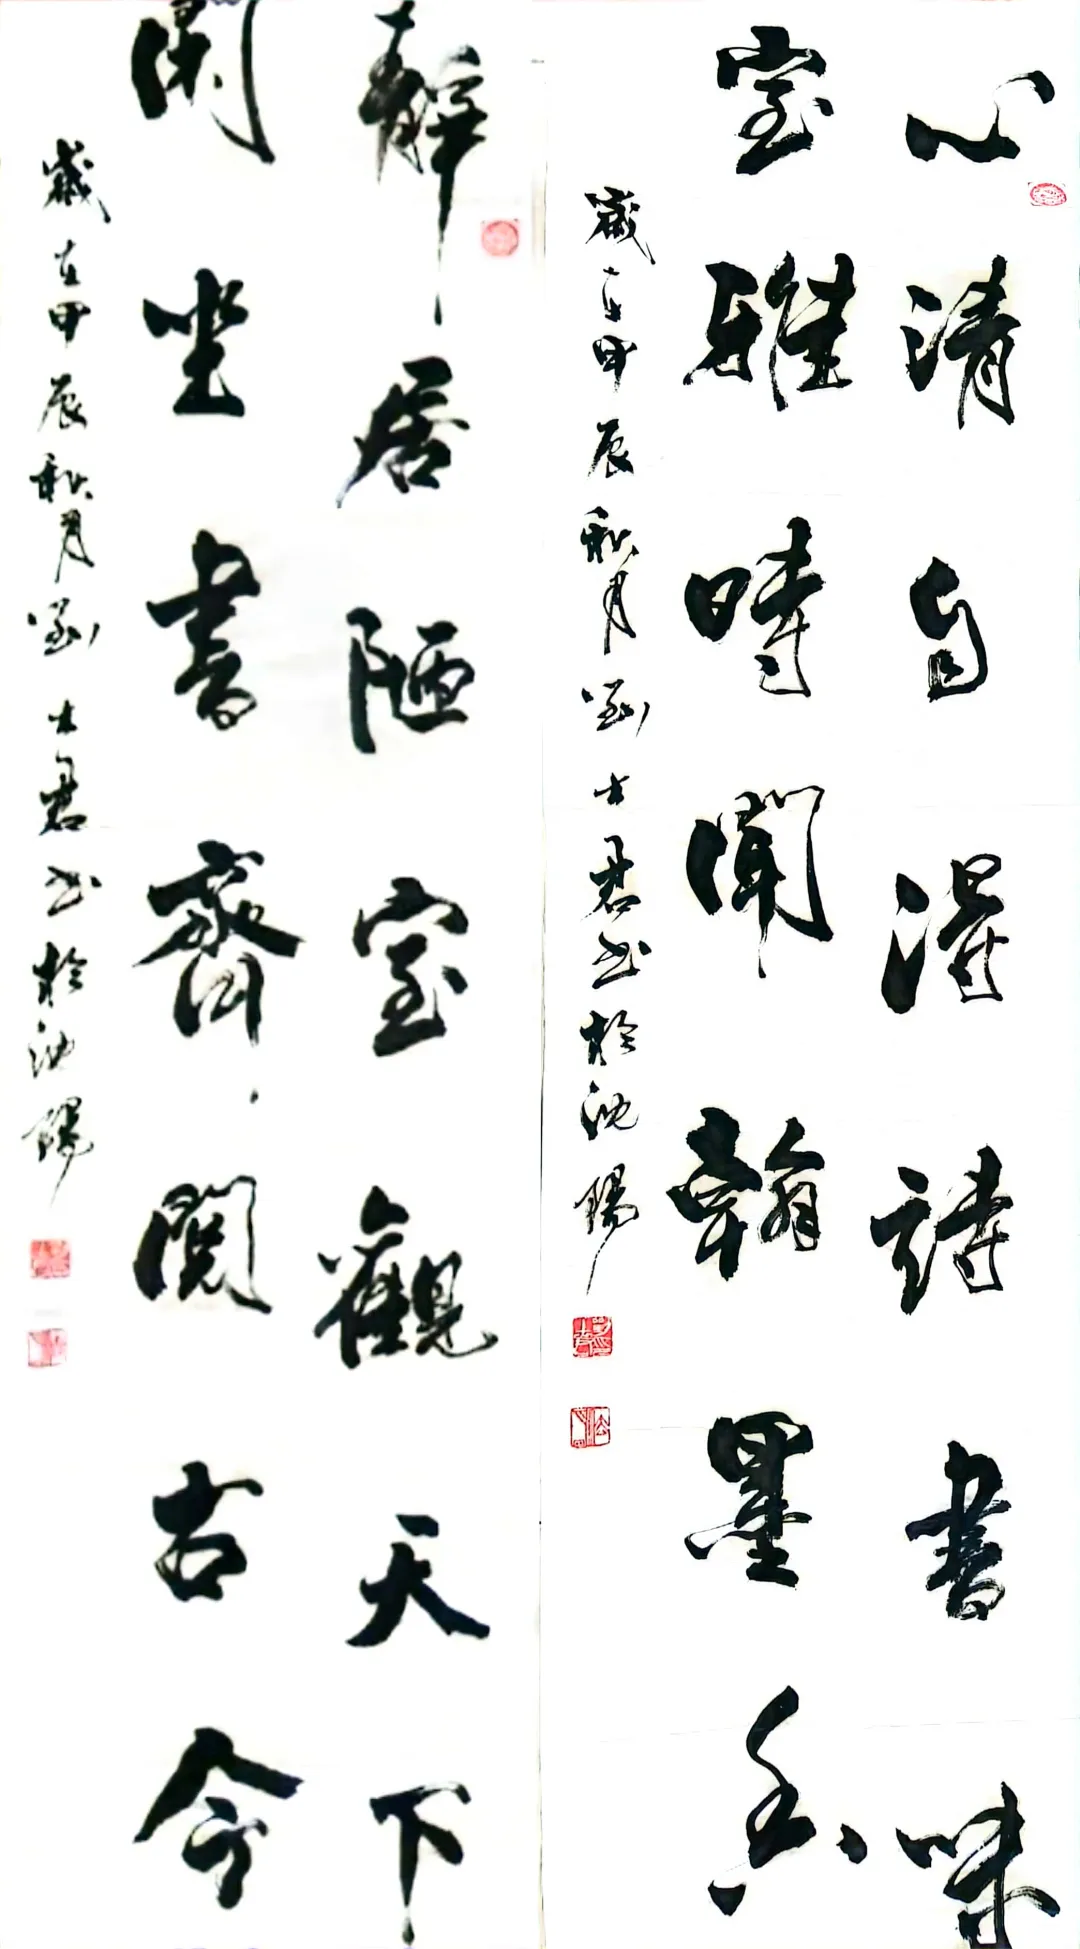 心清自得詩書味
室雅時聞翰墨香
歲在甲辰秋月劉士君书於沈陽
靜居陋室觀天下
閑坐書齋閱古今
歲在甲辰秋月劉士君书於沈陽